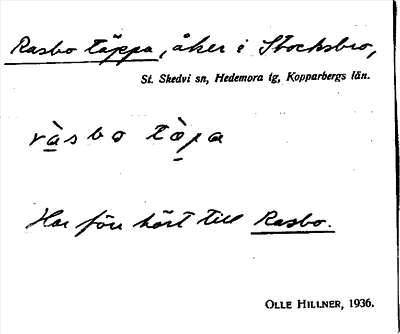 Rasbo täppa, åker i Stocksbro,
St. Skedvi sn, Hedemora tg, Kopparbergs län.
ràsbo tòpa
Har förr hört till Rasbo.
OLLE HILLNER, 1936.